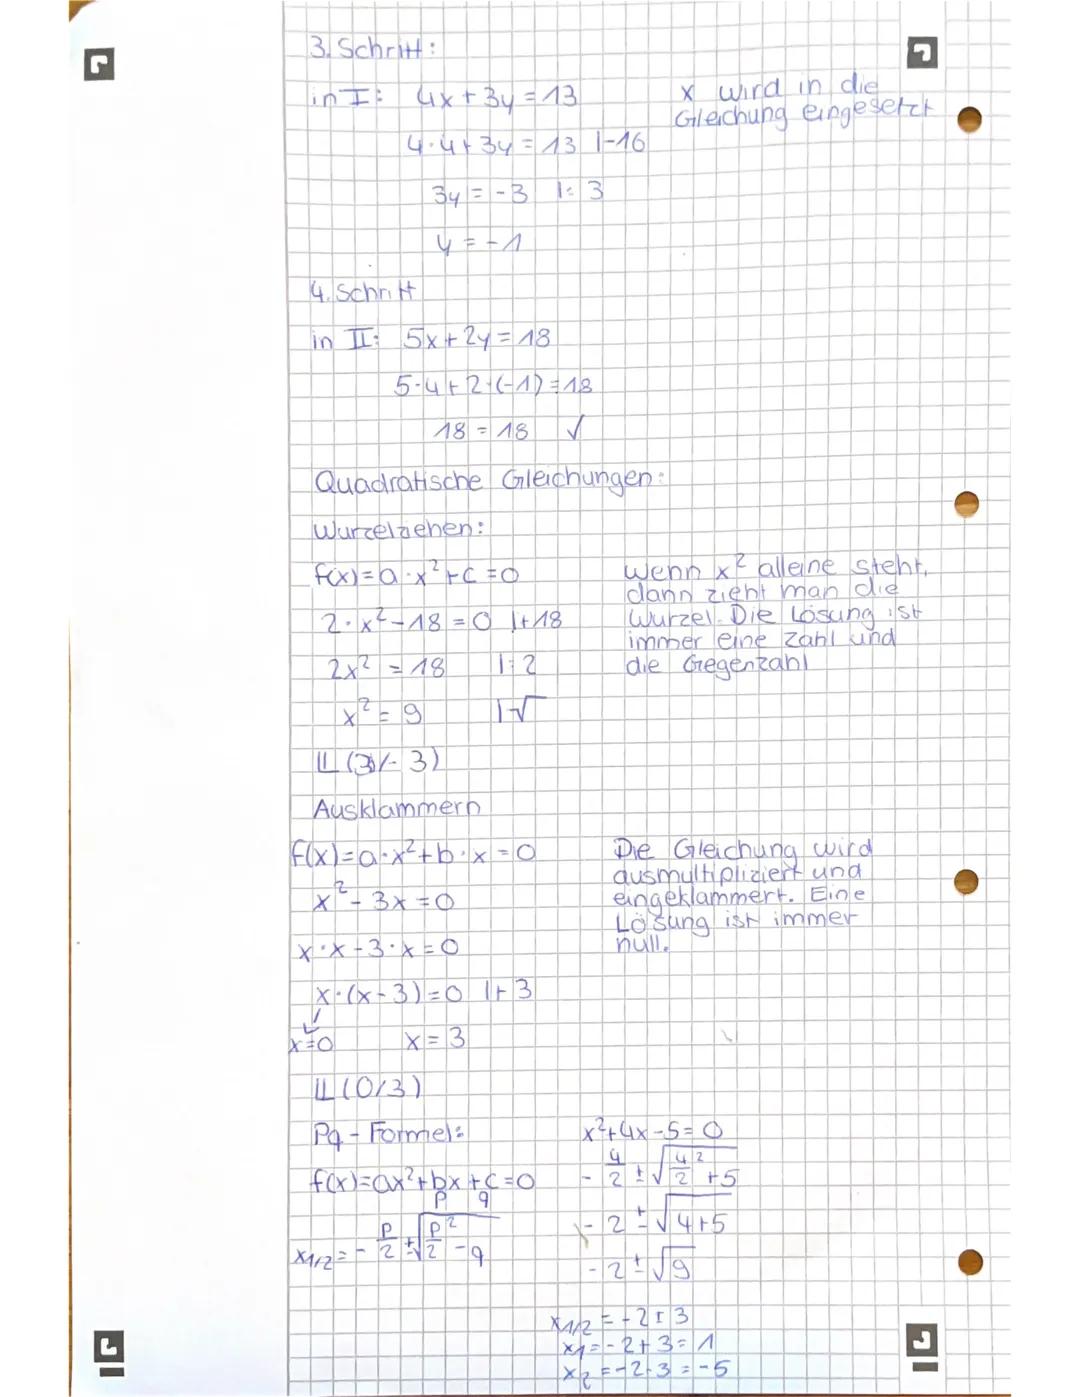 3. Schritt:
in I: 4x + 3y = 13
x wird in die
Gleichung eingesetzt
4·4 + 3y = 13 |-16
3y = -3 |: 3
y = -1
4. Schritt
in II: 5x + 2y = 18
5·4 + 2·(-1) = 18
18 = 18 ✓
Quadratische Gleichungen:
Wurzelziehen:
f(x) = a·x² + c = 0
2·x² - 18 = 0 |+18
2x² = 18 |: 2
x² = 9 |√
Wenn x² alleine steht,
dann zieht man die
Wurzel. Die Lösung ist
immer eine Zahl und
die Gegenzahl
𝕃 (3/-3)
Ausklammern
f(x) = a·x² + b·x = 0
x² - 3x = 0
x·x - 3·x = 0
x·(x - 3) = 0 |+ 3
x = 0 x = 3
𝕃 (0/3)
Die Gleichung wird
ausmultipliziert und
eingeklammert. Eine
Lösung ist immer
null.
Pq - Formel:
f(x) = ax² + bx + c = 0
p q
x1/2 = - p/2 ± √(p/2² - q)
x² + 4x - 5 = 0
- 4/2 ± √(4/2² + 5)
- 2 ± √(4+5)
- 2 ± √9
x1/2 = -2 ± 3
x1 = -2 + 3 = 1
x2 = -2-3 = -5